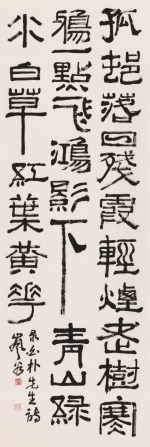 孤邨落日殘霞輕煙老樹寒
鴉一點飛鴻影下青山綠
水白草紅葉黃花
录白朴先生詩